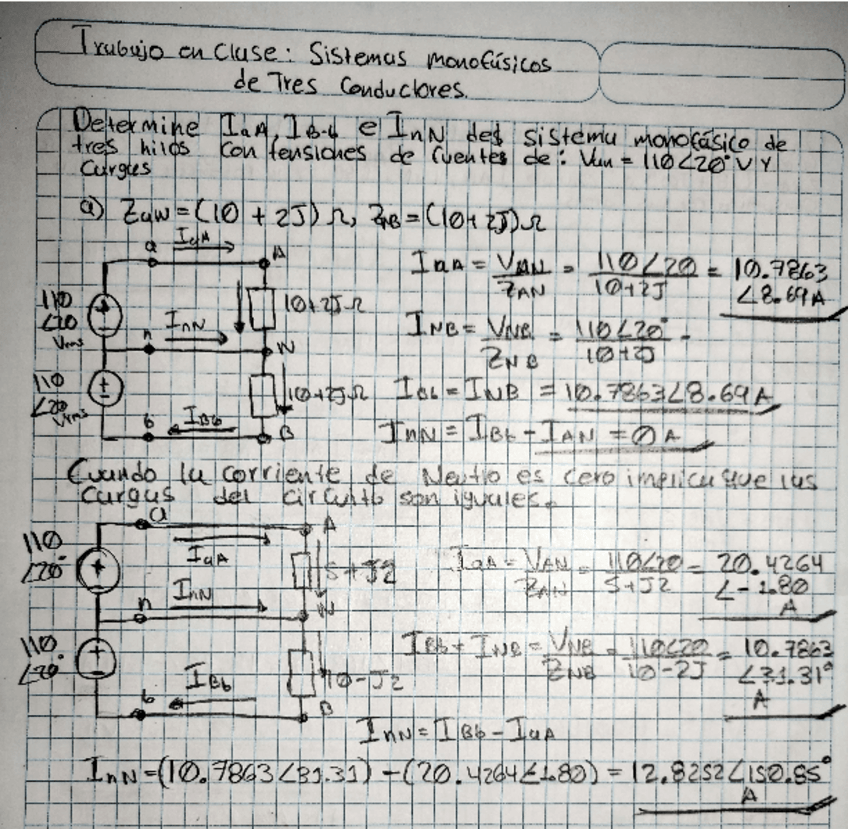 Trabajo en Clase: Sistemas monofásicos
de Tres Conductores.
Determine IaA, IB-b e InN del sistema monofásico de
tres hilos con tensiones de fuentes de: Van = 110∠20° V Y
Cargas
a) ZaW = (10 + 2J) Ω, ZNB = (10+2J) Ω
a
IaA
A
110
∠20
Vrms
10+2J Ω
n
InN
N
110
∠20
Vrms
10+2J Ω
b
IBb
B
IaA = VAN/ZAN = 110∠20/10+2J = 10.7863
∠8.69 A
INB = VNB/ZNB = 110∠20°/10+2J =
IBb = INB = 10.7863∠8.69 A
InN = IBb - IAN = 0 A
Cuando la corriente de Neutro es cero implica que las
cargas del circuito son iguales.
a
A
110
∠20°
IaA
5+J2
InN
n
N
110
∠20°
10-J2
IBb
b
B
IaA = VAN/ZAN = 110∠20/5+J2 = 20.4264
∠-1.80
A
IBb = INB = VNB/ZNB = 110∠20/10-2J = 10.7863
∠31.31°
A
InN = IBb - IaA
InN = (10.7863∠31.31) - (20.4264∠1.80) = 12.8252∠150.85°
A